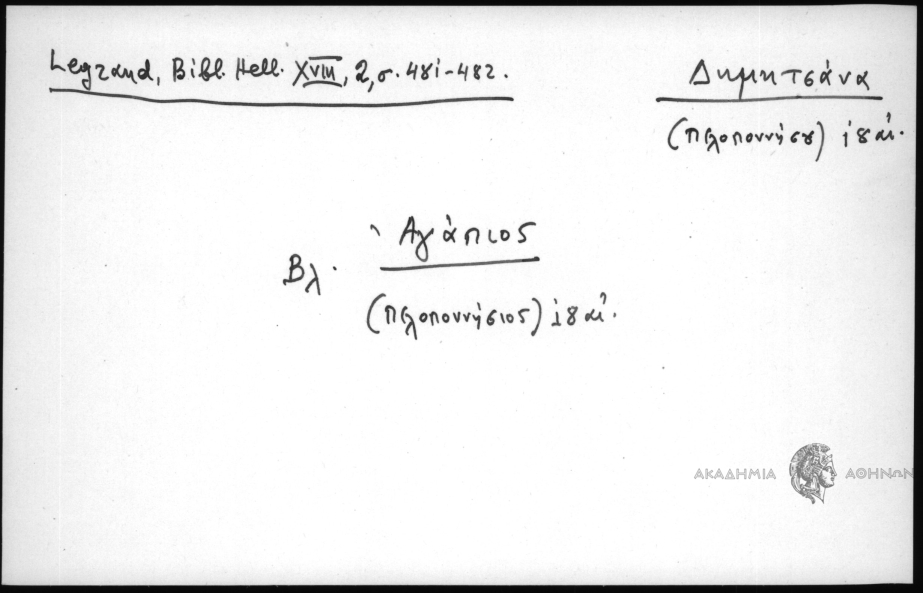 Legrand, Bibl. Hell. XVIII, 2, σ. 481-482.
Δημητσάνα
(Πελοποννήσου) 18 αἰ.
Βλ. Ἀγάπιος
(Πελοποννήσιος) 18 αἰ.
ΑΚΑΔΗΜΙΑ ΑΘΗΝΩΝ